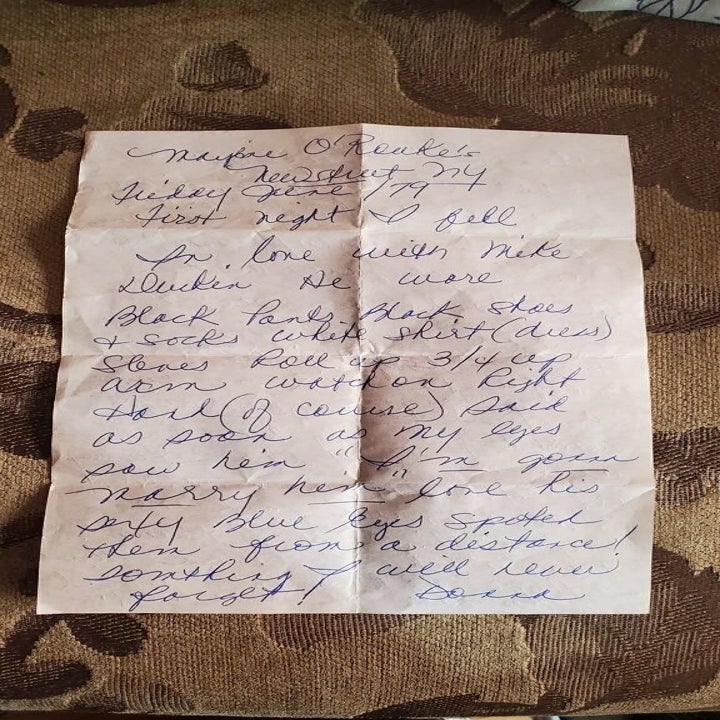 O'Rourke's
NY
Friday June /79
First night I fell
In love with Mike
He wore
Black Pants Black Shoes
+ Socks white shirt (dress)
Sleves Roll up 3/4 up
arm watch on Right
Hand (of course) Said
as soon as my eyes
saw him "I'm gonna
marry him" love his
sexy Blue Eyes Spoted
them from a distance!
Somthing I will never
forget! Donna